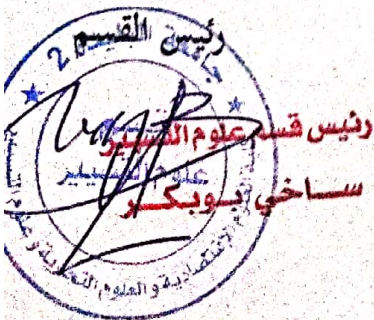 رئيس القسم
رئيس قسم علوم التسيير
ساخي بوبكر
علوم التسيير
2
الاقتصادية و العلوم التجارية و علوم